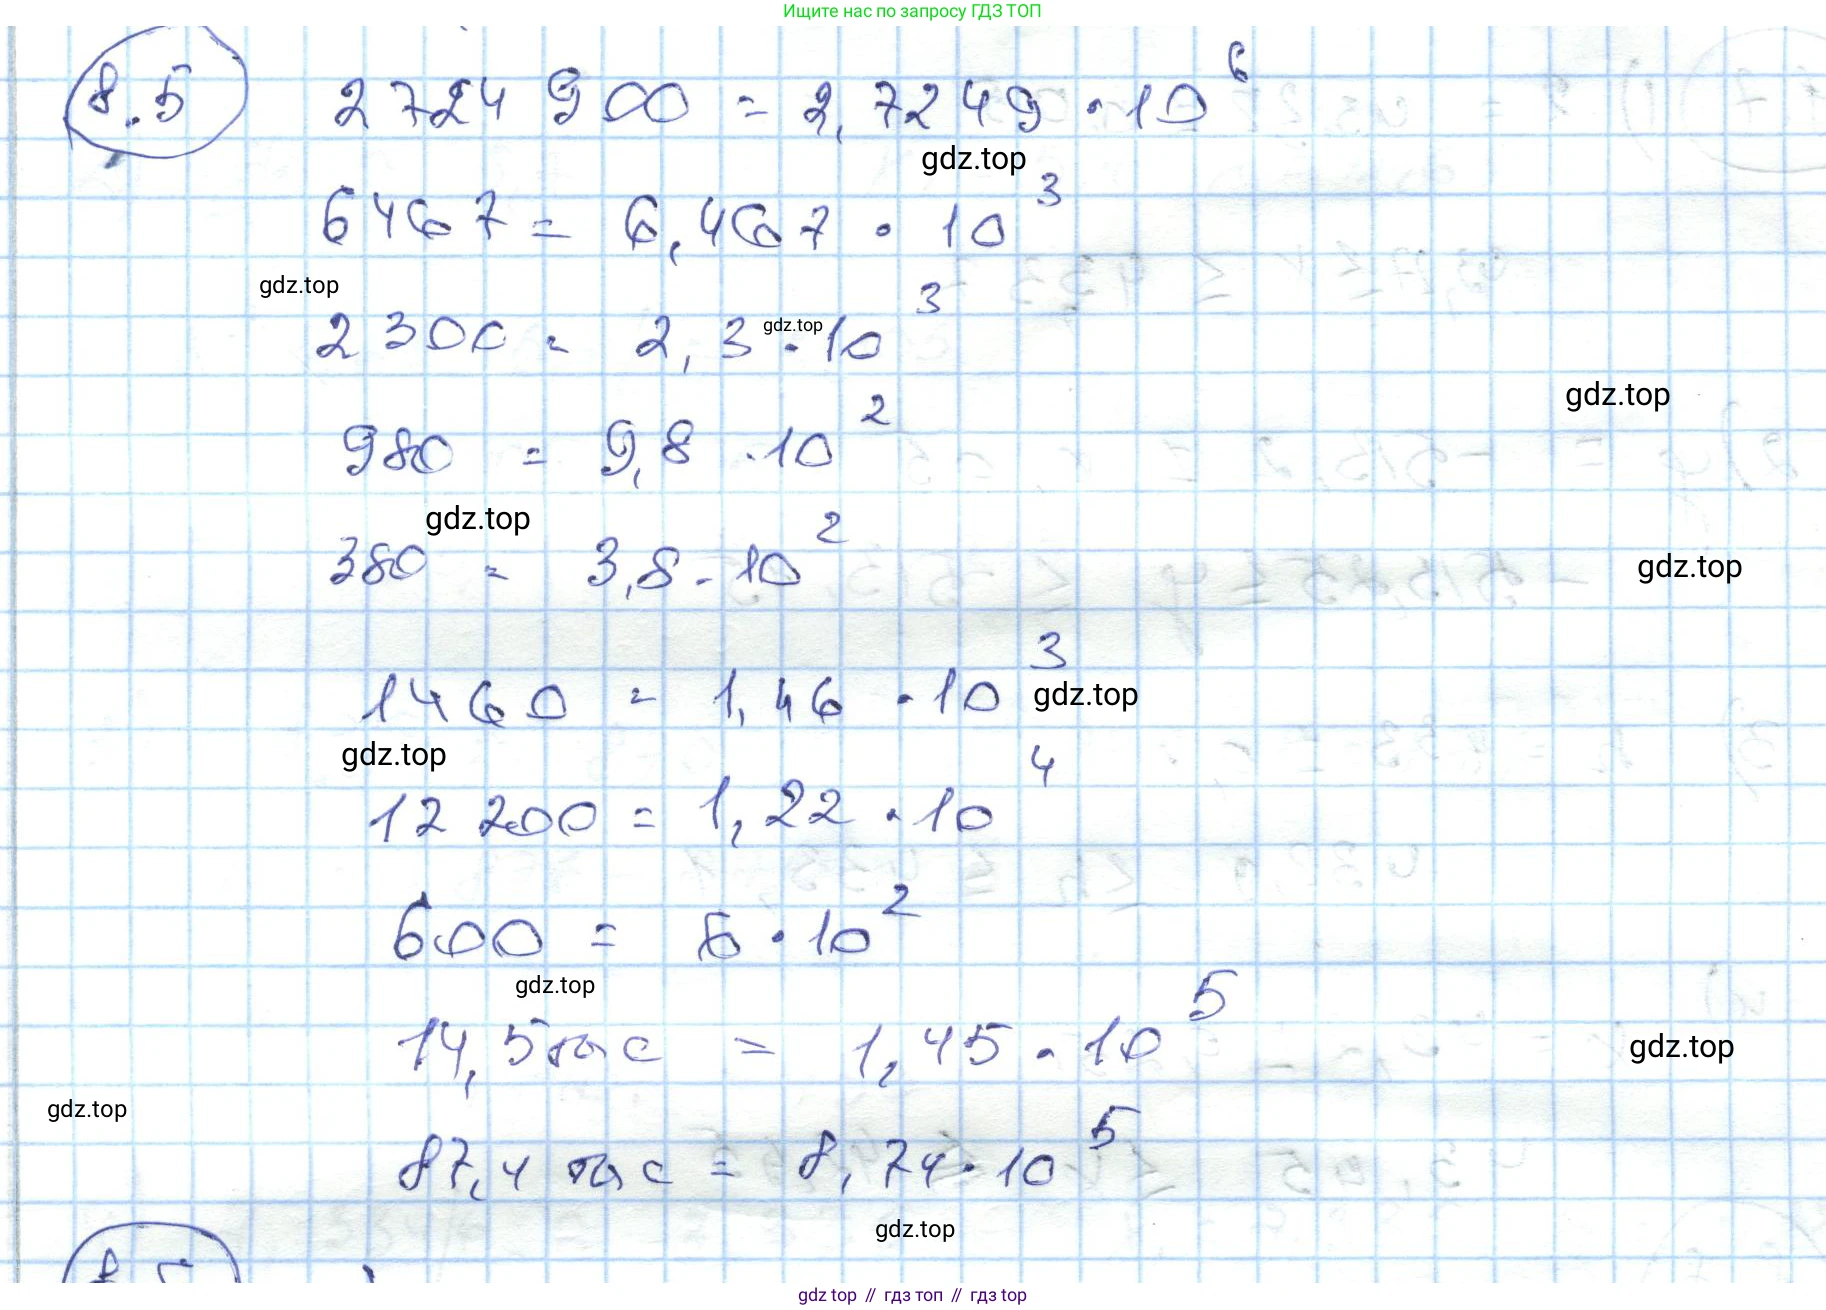 Ищите нас по запросу ГДЗ ТОП
8.5 2724 900 = 2,7249 · 10^6
gdz.top
6467 = 6,467 · 10^3
gdz.top
2 300 = 2,3 · 10^3
gdz.top
gdz.top
980 = 9,8 · 10^2
gdz.top
380 = 3,8 · 10^2
gdz.top
1460 = 1,46 · 10^3
gdz.top
gdz.top
12 200 = 1,22 · 10^4
600 = 6 · 10^2
gdz.top
14,5 тыс = 1,45 · 10^5
gdz.top
gdz.top
87,4 тыс = 8,74 · 10^5
gdz.top
gdz top // гдз топ // гдз top